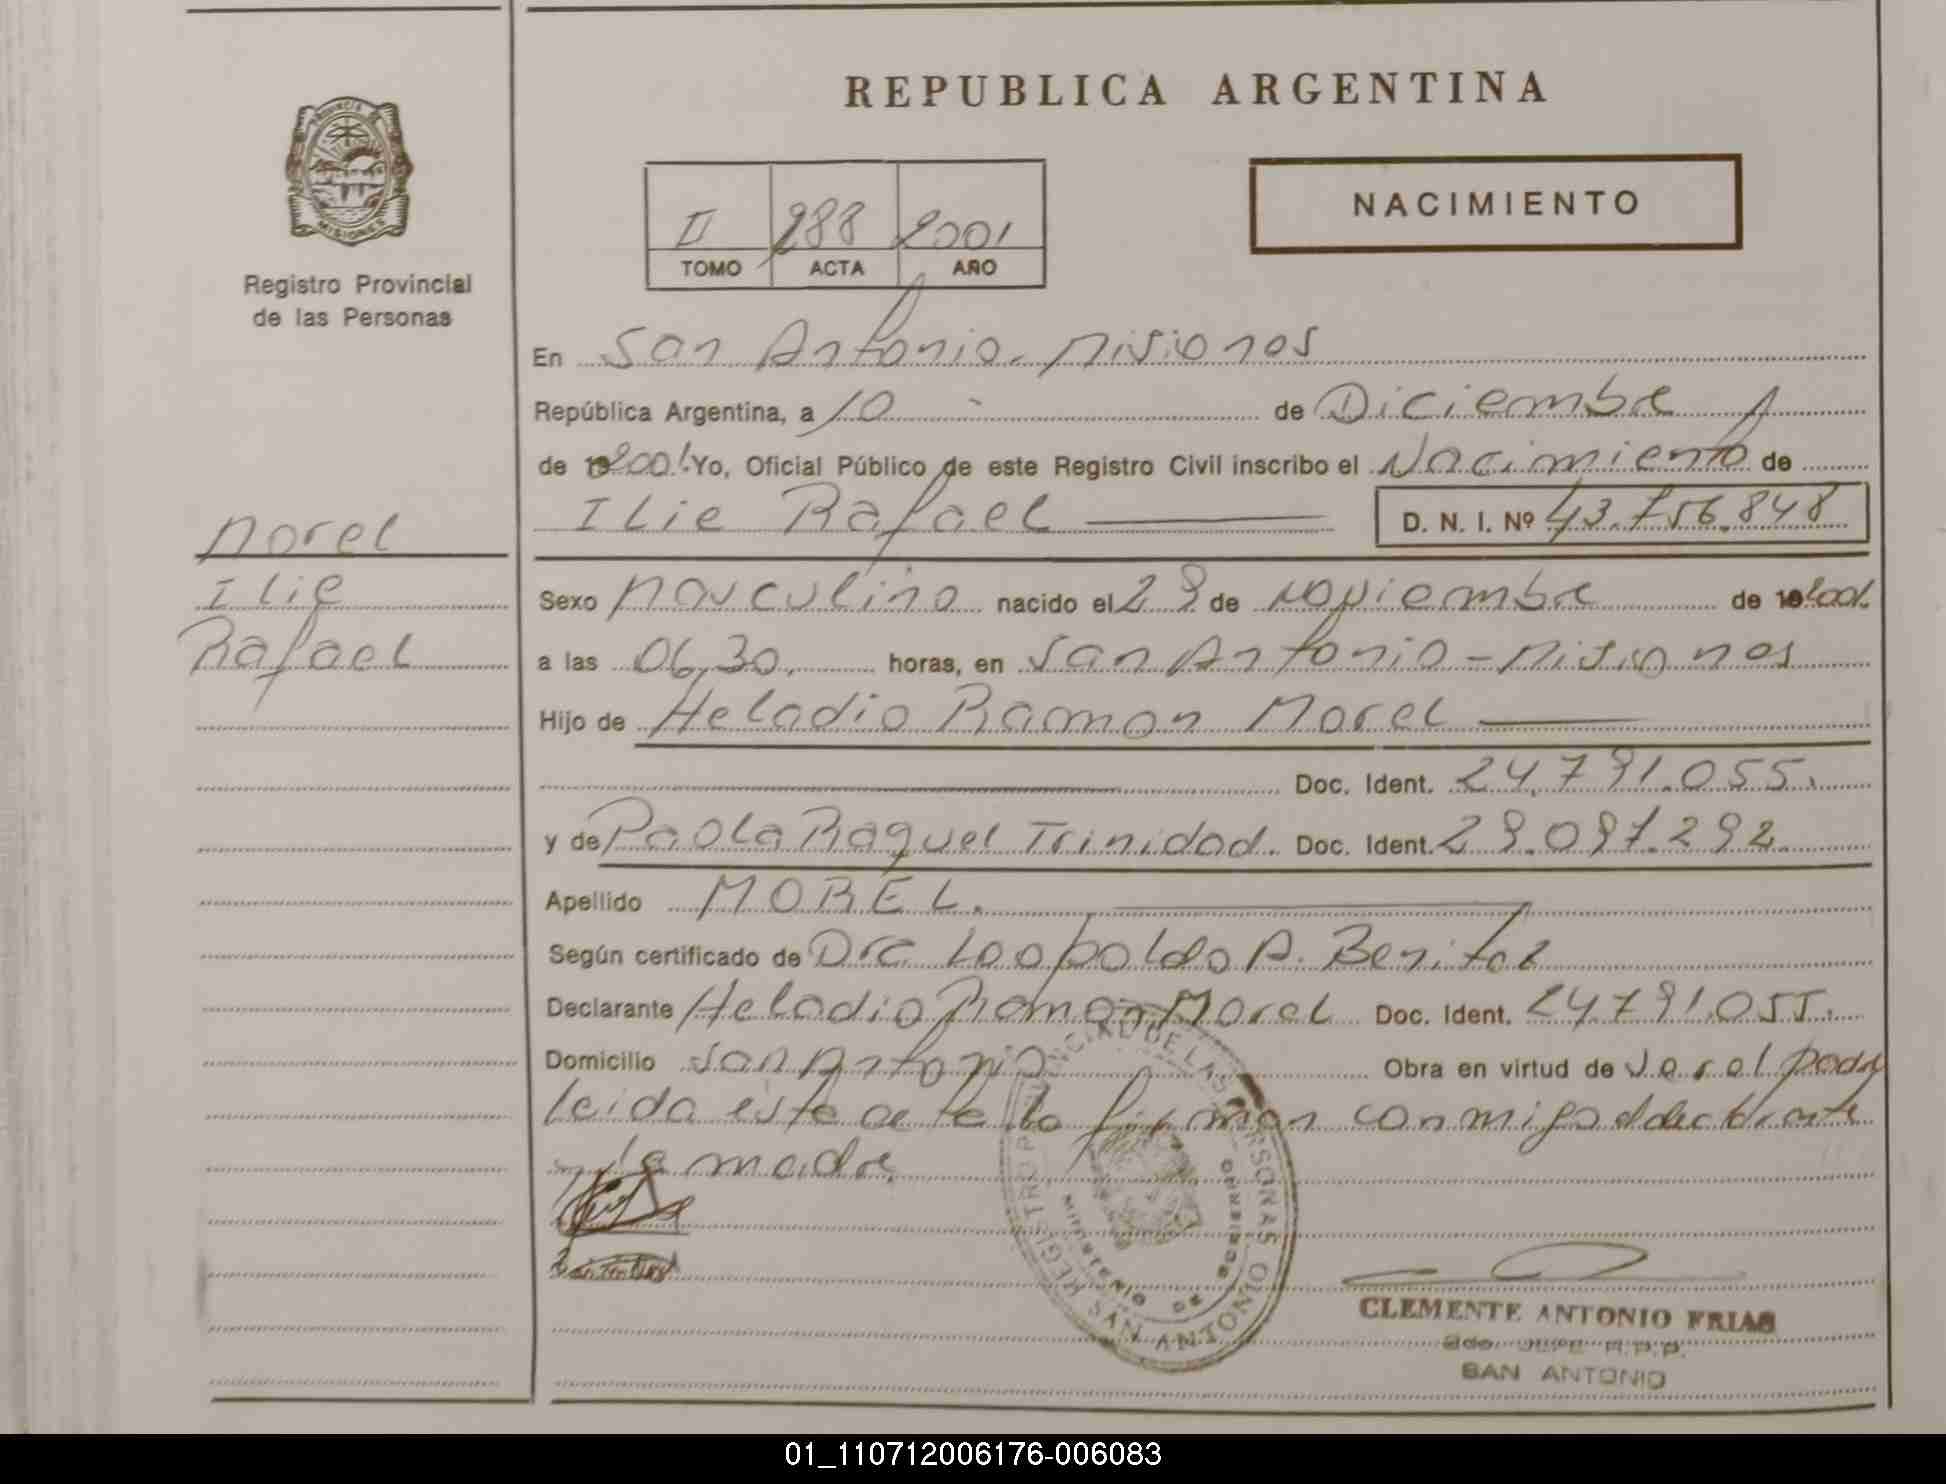 REPUBLICA ARGENTINA
PROVINCIA
MISIONES
Registro Provincial
de las Personas
II 288 2001
TOMO ACTA AÑO
NACIMIENTO
En San Antonio. Misiones
República Argentina, a 10 - de Diciembre
de 2001. Yo, Oficial Público de este Registro Civil inscribo el Nacimiento de
Ilie Rafael
D. N. I. Nº 43.756.848
Morel
Ilie
Rafael
Sexo Masculino nacido el 29 de Noviembre de 2001.
a las 06,30. horas, en San Antonio - Misiones
Hijo de Heladio Ramon Morel
Doc. Ident. 24.791.055.
y de Paola Raquel Trinidad. Doc. Ident. 29.097.292.
Apellido MOREL.
Según certificado de Dr. Leopoldo A. Benitez
Declarante Heladio Ramon Morel Doc. Ident. 24791.055.
Domicilio San Antonio Obra en virtud de ser el padre
leida este acta la firman conmigo el declarante
y la madre.
REGISTRO PROVINCIAL DE LAS PERSONAS
MINISTERIO DE GOBIERNO
SAN ANTONIO
CLEMENTE ANTONIO FRIAS
2do. JEFE R.P.P.
SAN ANTONIO
01_110712006176-006083